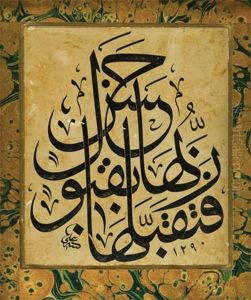 فتقبلها
ربها بقبول
حسن
١٢٩٠